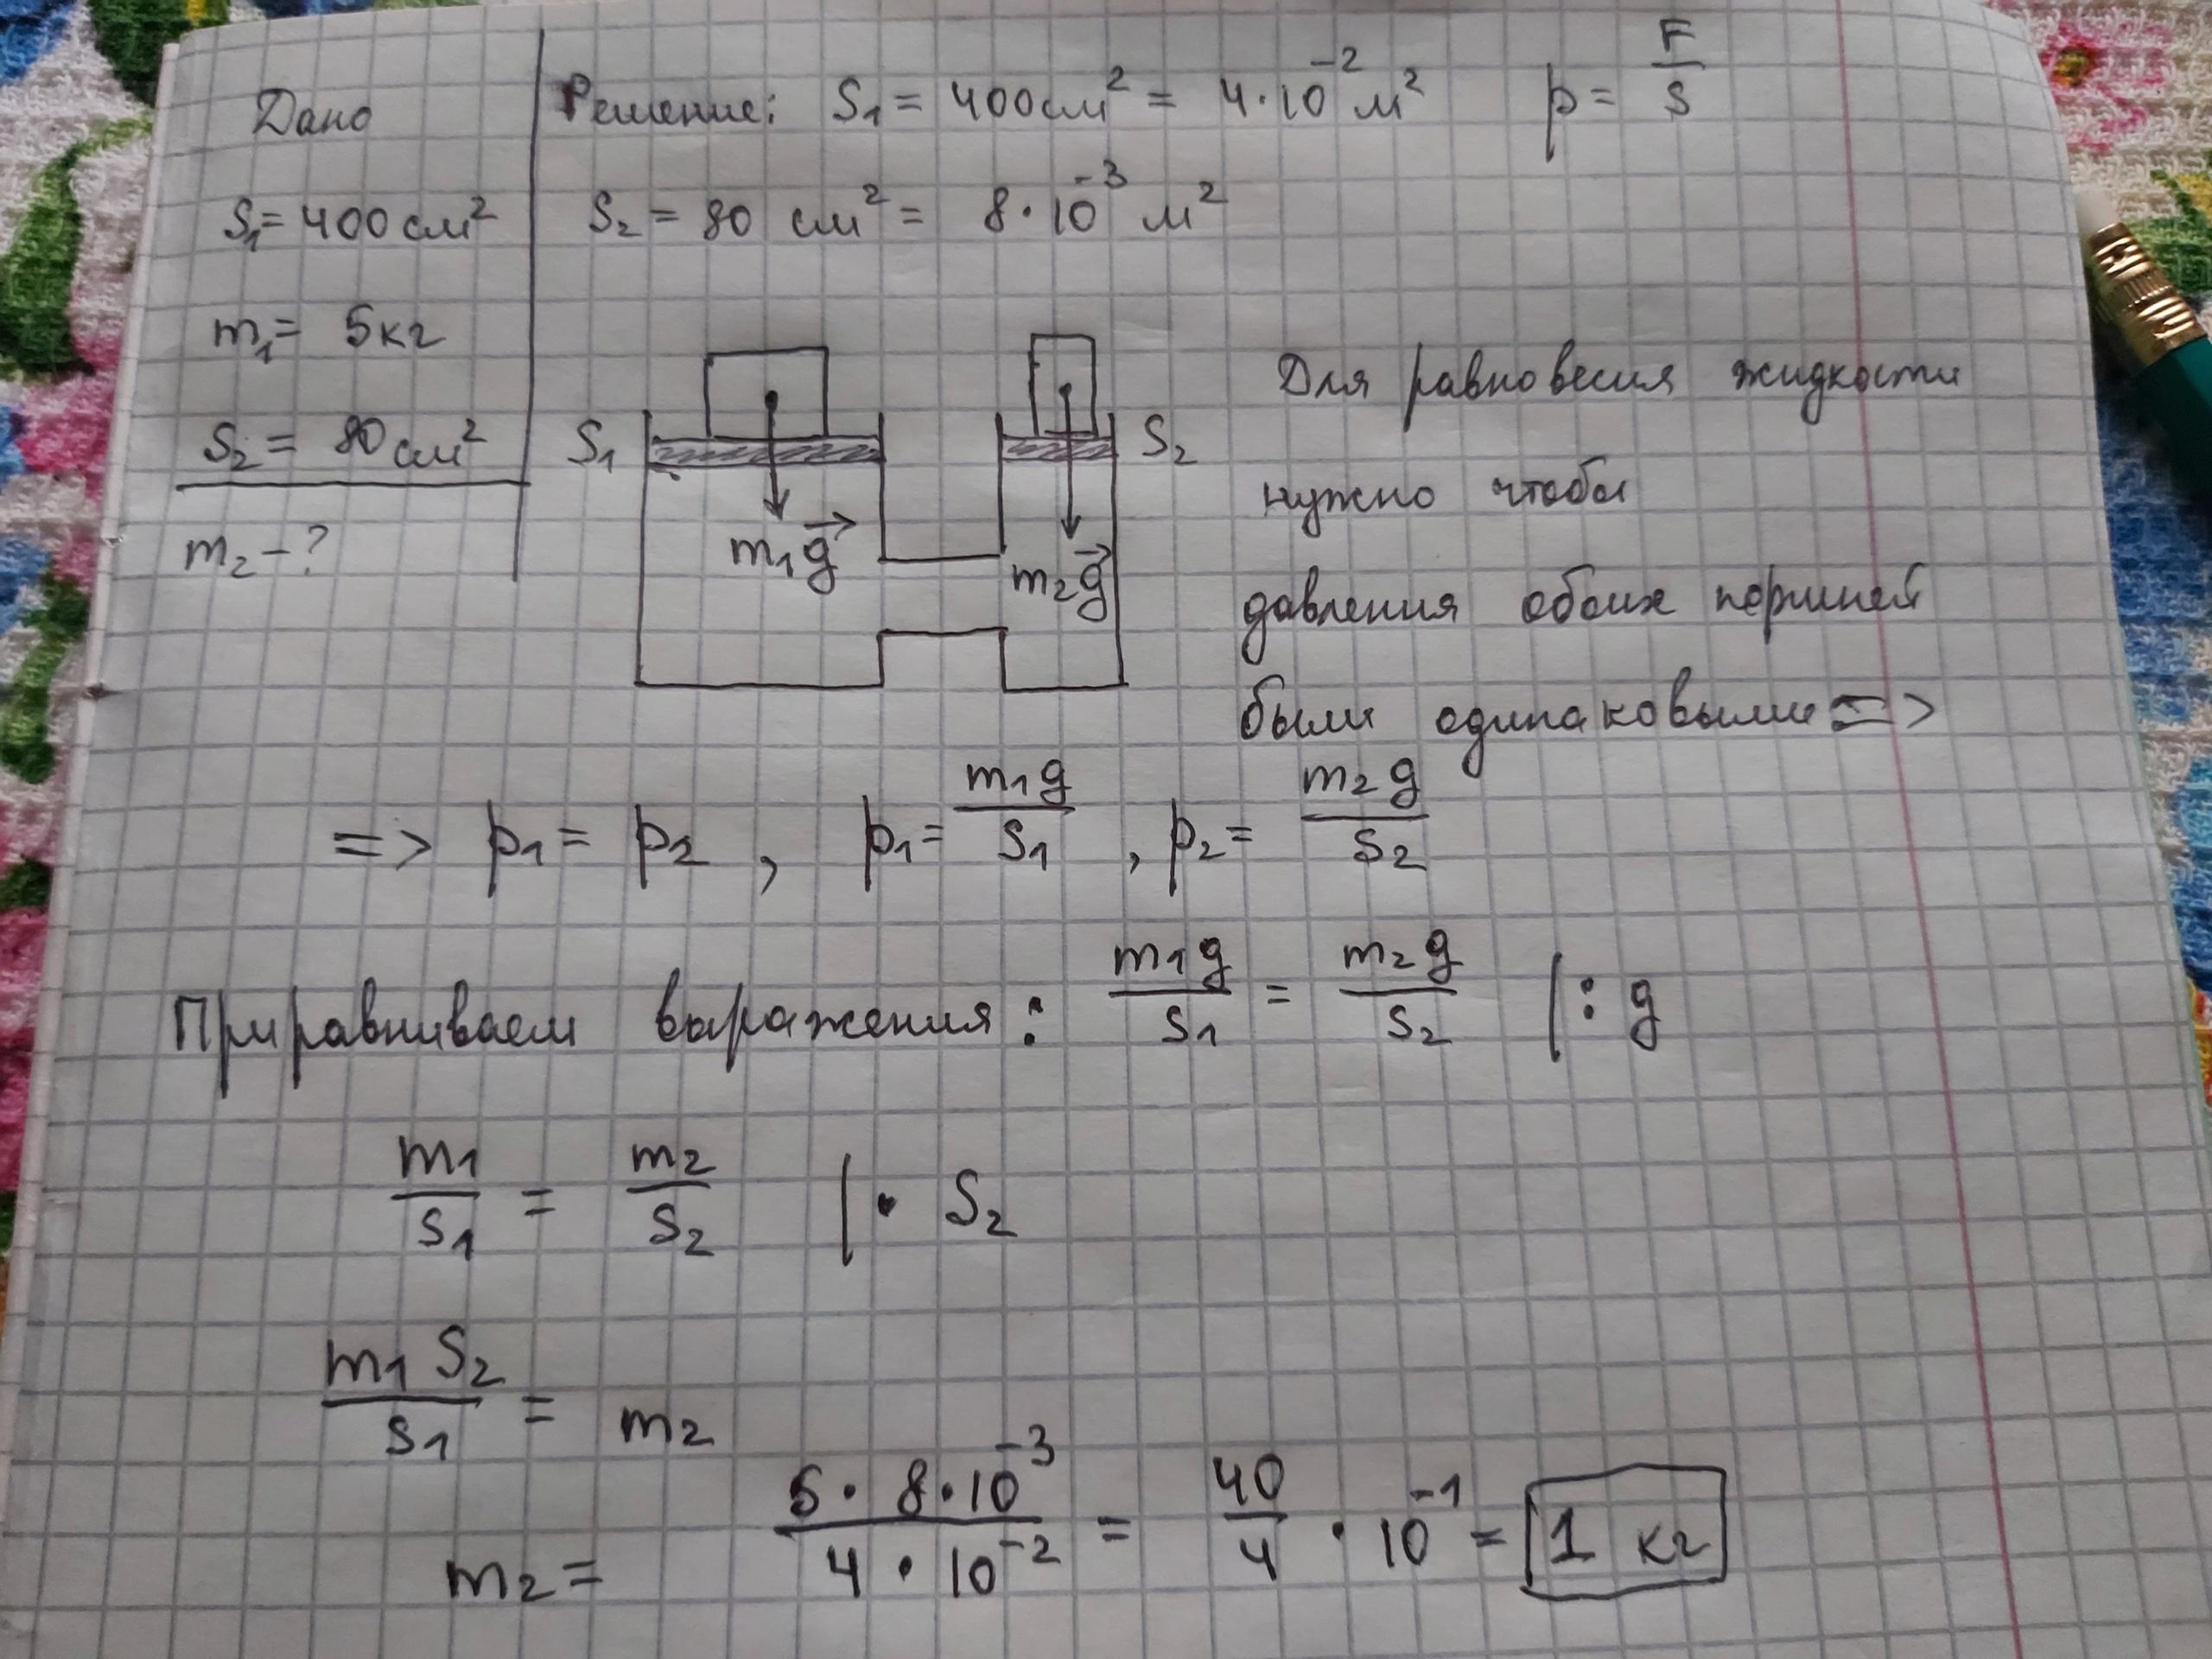 Дано
S₁ = 400 см²
m₁ = 5 кг
S₂ = 80 см²
m₂ - ?
Решение: S₁ = 400 см² = 4·10⁻² м² p = F/S
S₂ = 80 см² = 8·10⁻³ м²
S₁ m₁g⃗ m₂g⃗ S₂
Для равновесия жидкости
нужно чтобы
давления обоих поршней
были одинаковыми =>
=> p₁ = p₂ , p₁ = m₁g/S₁ , p₂ = m₂g/S₂
Приравниваем выражения: m₁g/S₁ = m₂g/S₂ |: g
m₁/S₁ = m₂/S₂ |· S₂
m₁S₂/S₁ = m₂
m₂ = 5·8·10⁻³/4·10⁻² = 40/4 · 10⁻¹ = 1 кг